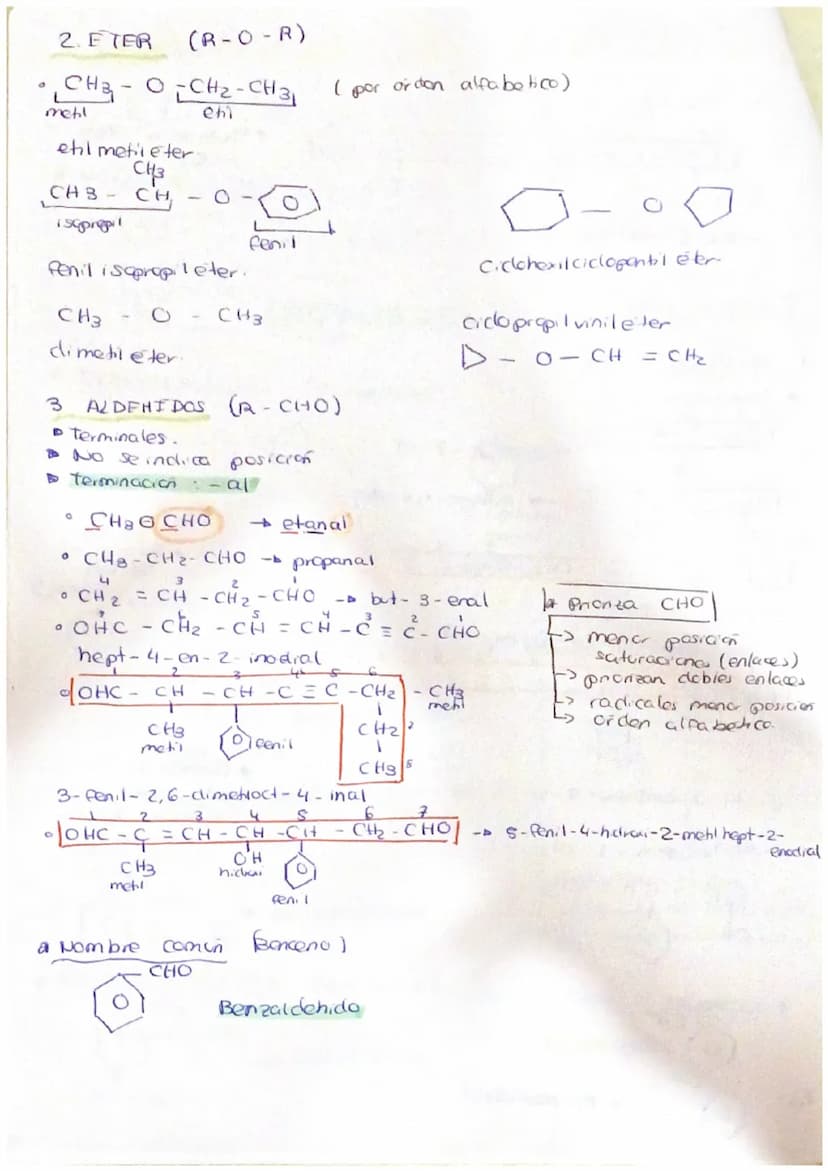 2. ETER (R-O-R)
CH3 - O - CH2 - CH3 (por orden alfabetico)
metil etil
etil metil éter.
CH3
CH3 - CH - O -
isopropil
fenil
fenil isopropil éter.
Ciclohexilciclopentil éter
O
CH3 - O - CH3
dimetil éter.
ciclopropil vinil eter
- O - CH = CH2
3 ALDEHIDOS (R - CHO)
Terminales.
No se indica posición
terminación : - al
CH3 CHO → etanal
CH3 - CH2 - CHO → propanal
4 3 2 1
CH2 = CH - CH2 - CHO → but-3-enal
7 6 5 4 3 2 1
OHC - CH2 - CH = CH - C ≡ C - CHO
hept-4-en-2-inodial
Prioriza CHO
→ menor posición
saturaciones (enlaces)
→ priorizan dobles enlaces
→ radicales menor posición
→ orden alfabetico
1 2 3 4 5 6
OHC - CH - CH - C ≡ C - CH2 - CH3
metil
CH3 CH2 7
metil fenil
CH3 8
3-fenil-2,6-dimetiloct-4-inal
1 2 3 4 5 6 7
OHC - C = CH - CH - CH - CH2 - CHO → 5-fenil-4-hidroxi-2-metil hept-2-
enodial
CH3 OH
metil hidroxi
fenil
Nombre común (benceno)
CHO
Benzaldehido